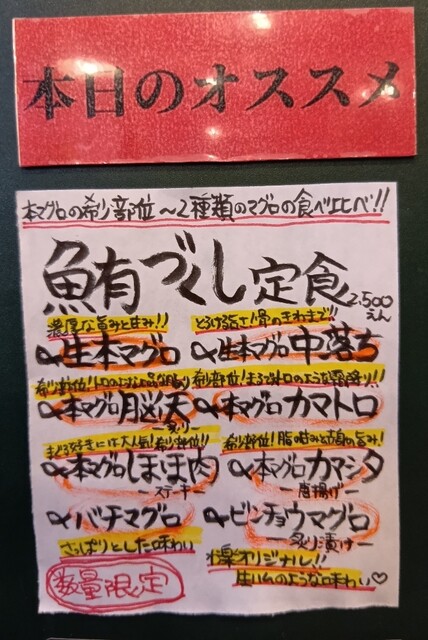 本日のオススメ
本マグロの希少部位～2種類のマグロの食べ比べ!!
鮪づくし定食 2,500えん
濃厚な旨みと甘み!!
生本マグロ
とろける旨さ!骨のきわまで!!
生本マグロ中落ち
希少部位!トロのような
本マグロ脳天
炙り
希少部位!まるで大トロのような霜降り!!
本マグロカマトロ
まぐろ好きには大人気!希少部位!!
本マグロほほ肉
ステーキ
希少部位!脂の旨みと頭の旨み!
本マグロカマシタ
唐揚げ
バチマグロ
さっぱりとした味わい
ビンチョウマグロ
炙り漬け
オリジナル!!
生ハムのような味わい♡
数量限定